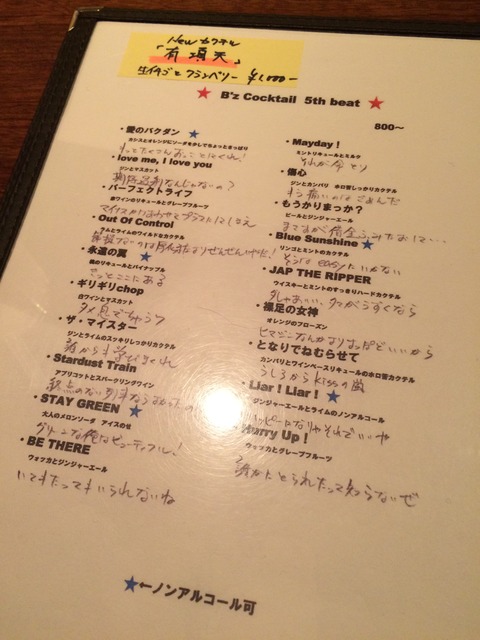 Newカクテル
「有頂天」
生イチゴとクランベリー ¥1,000-
★ B'z Cocktail 5th beat ★
800〜
・愛のバクダン ★
カシスとオレンジにソーダをかしでちょっとさっぱり
もっとたくさんおっことしてくれ!
・love me, I love you
ジンとマスカット
・パーフェクトライフ
赤ワインのリキュールとグレープフルーツ
マイナスかけあわせてプラスにしちまえ
・Out Of Control
ラムとライムのワイルドなカクテル
・永遠の翼 ★
桃のリキュールとパイナップル
きっとここにある
・ギリギリchop
白ワインとマスカット
タメ息でちゃうワ
・ザ・マイスター
ジンとライムのスッキリしっかりカクテル
・Stardust Train
アプリコットとスパークリングワイン
・STAY GREEN ★
大人のメロンソーダ アイスのせ
グリーンな俺はビューティフル!
・BE THERE
ウォッカとジンジャーエール
いてもたってもいられないね
・Mayday！
ミントリキュールとミルク
それが今 とり
・傷心
ジンとカンパリ ホロ苦しっかりカクテル
・もうかりまっか？
ビールとジンジャーエール
・Blue Sunshine ★
リンゴとミントのカクテル
そうは easyに いかない
・JAP THE RIPPER
ウイスキーとミントのすっきりハードカクテル
・裸足の女神
オレンジのフローズン
・となりでねむらせて
カンパリとワインベースリキュールのホロ苦カクテル
うしろからkissの嵐
・Liar！Liar！ ★
ジンジャーエールとライムのノンアルコール
ハッピーになりゃそれでいいや
・Hurry Up！
ウォッカとグレープフルーツ
誰かにとられたって知らないぜ
★←ノンアルコール可